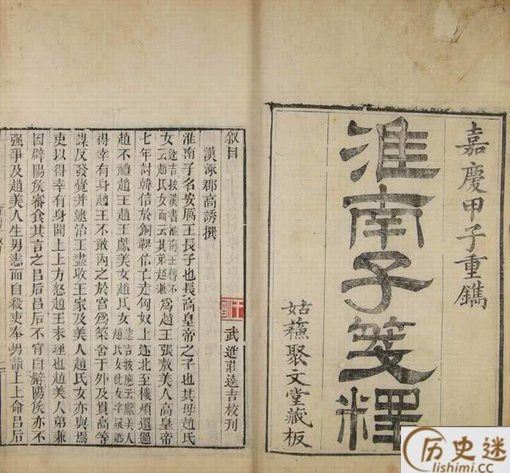 嘉慶甲子重鐫
淮南子箋釋
姑蘓聚文堂藏板
叙目
漢涿郡高誘撰
武進莊逵吉校刊
淮南子名安厲王長子也長高皇帝之子也其母趙氏
女逵吉按漢書淮南王傳不
云趙氏女
為趙王張敖美人高皇帝
七年討韓信於銅鞮信亡走匈奴上遂北至樓煩還過
趙不禮趙王趙王獻美女趙氏女
得幸有身趙王不敢內之於宮為築舍於外及貫高等
謀反發覺并逮治王盡收王家及美人趙氏女亦與焉
吏以得幸有身聞上上方怒趙王未理也趙美人弟兼
因辟陽侯審食其言之呂后呂后不肯白辟陽侯亦不
强爭及趙美人生男恚而自殺吏奉男詣上上命呂后
历史迷
lishimi.cc